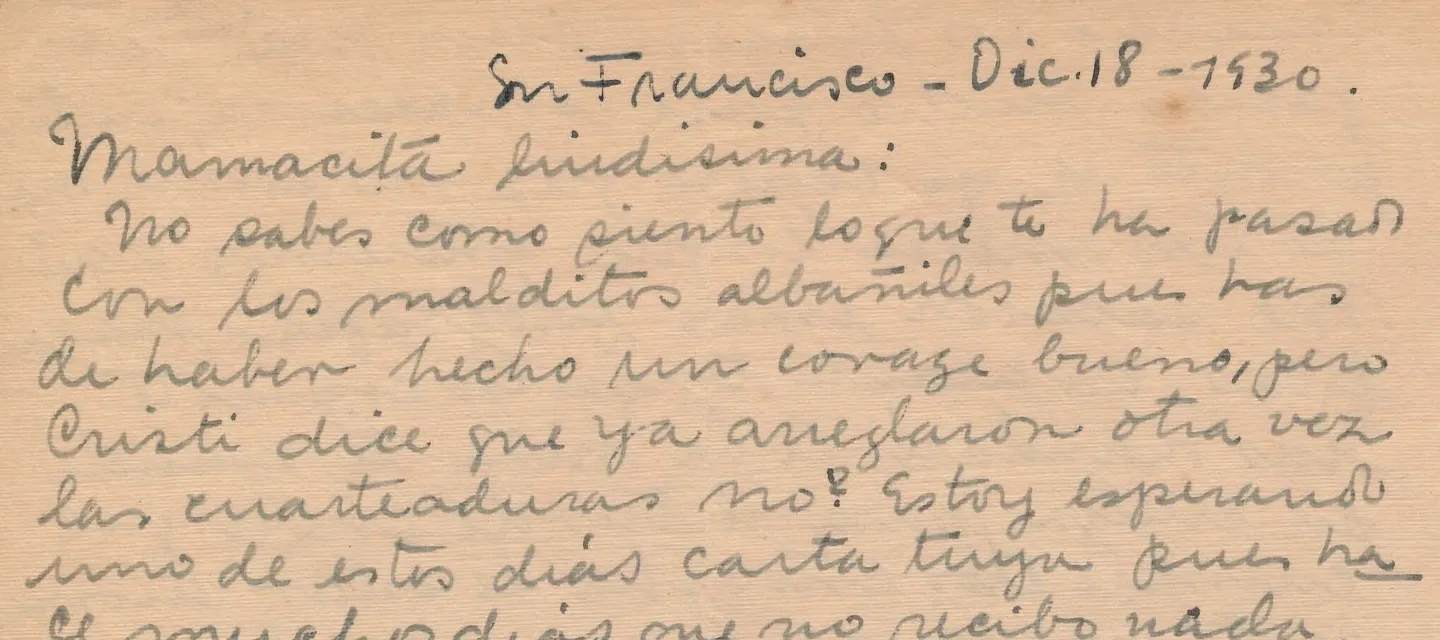 San Francisco - Dic. 18 - 1930.
Mamacita lindisima:
No sabes como siento lo que te ha pasado
con los malditos albañiles pues has
de haber hecho un corage bueno, pero
Cristi dice que ya arreglaron otra vez
las cuarteaduras no? Estoy esperando
uno de estos días carta tuya pues ha
ce muchos días que no recibo nada